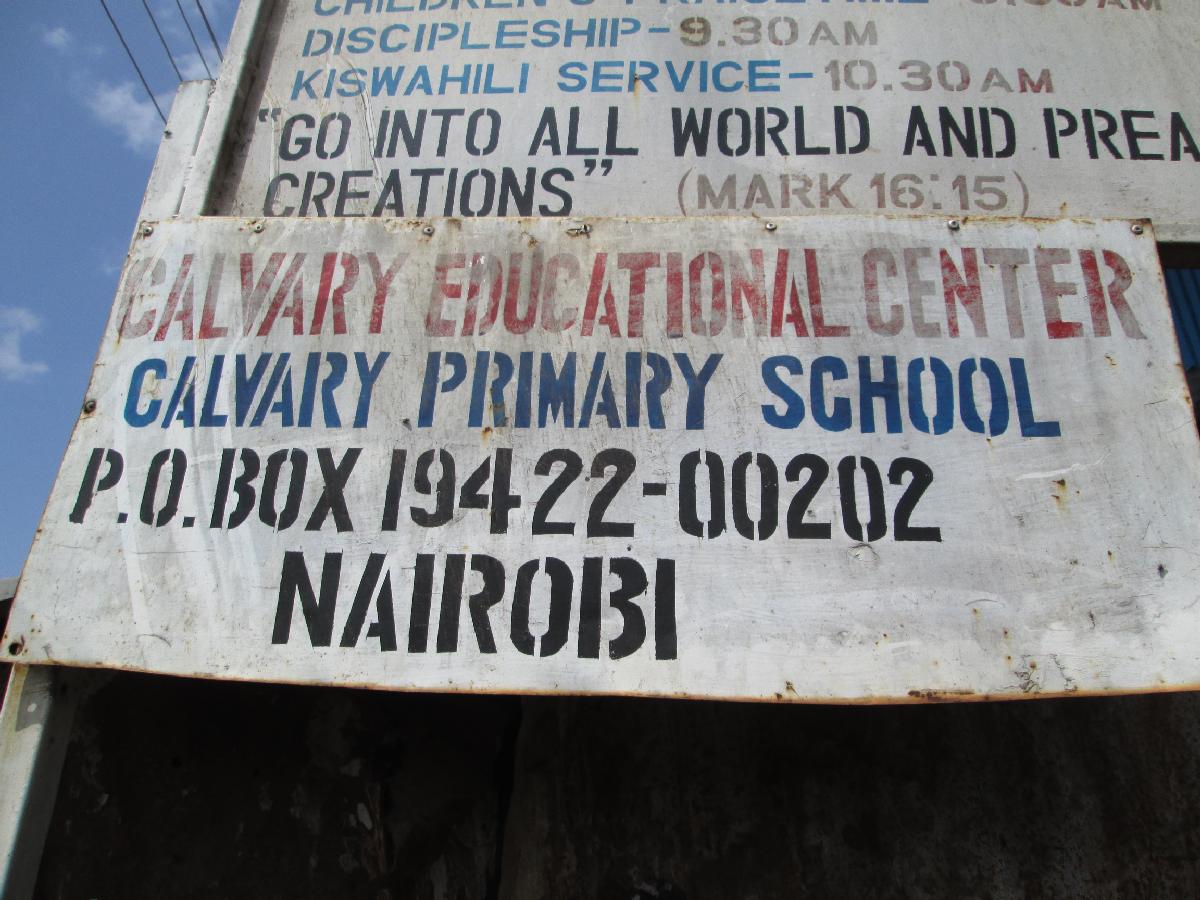 DISCIPLESHIP-9.30AM
KISWAHILI SERVICE-10.30AM
"GO INTO ALL WORLD AND PREA
CREATIONS" (MARK 16:15)
CALVARY EDUCATIONAL CENTER
CALVARY PRIMARY SCHOOL
P.O.BOX 19422-00202
NAIROBI